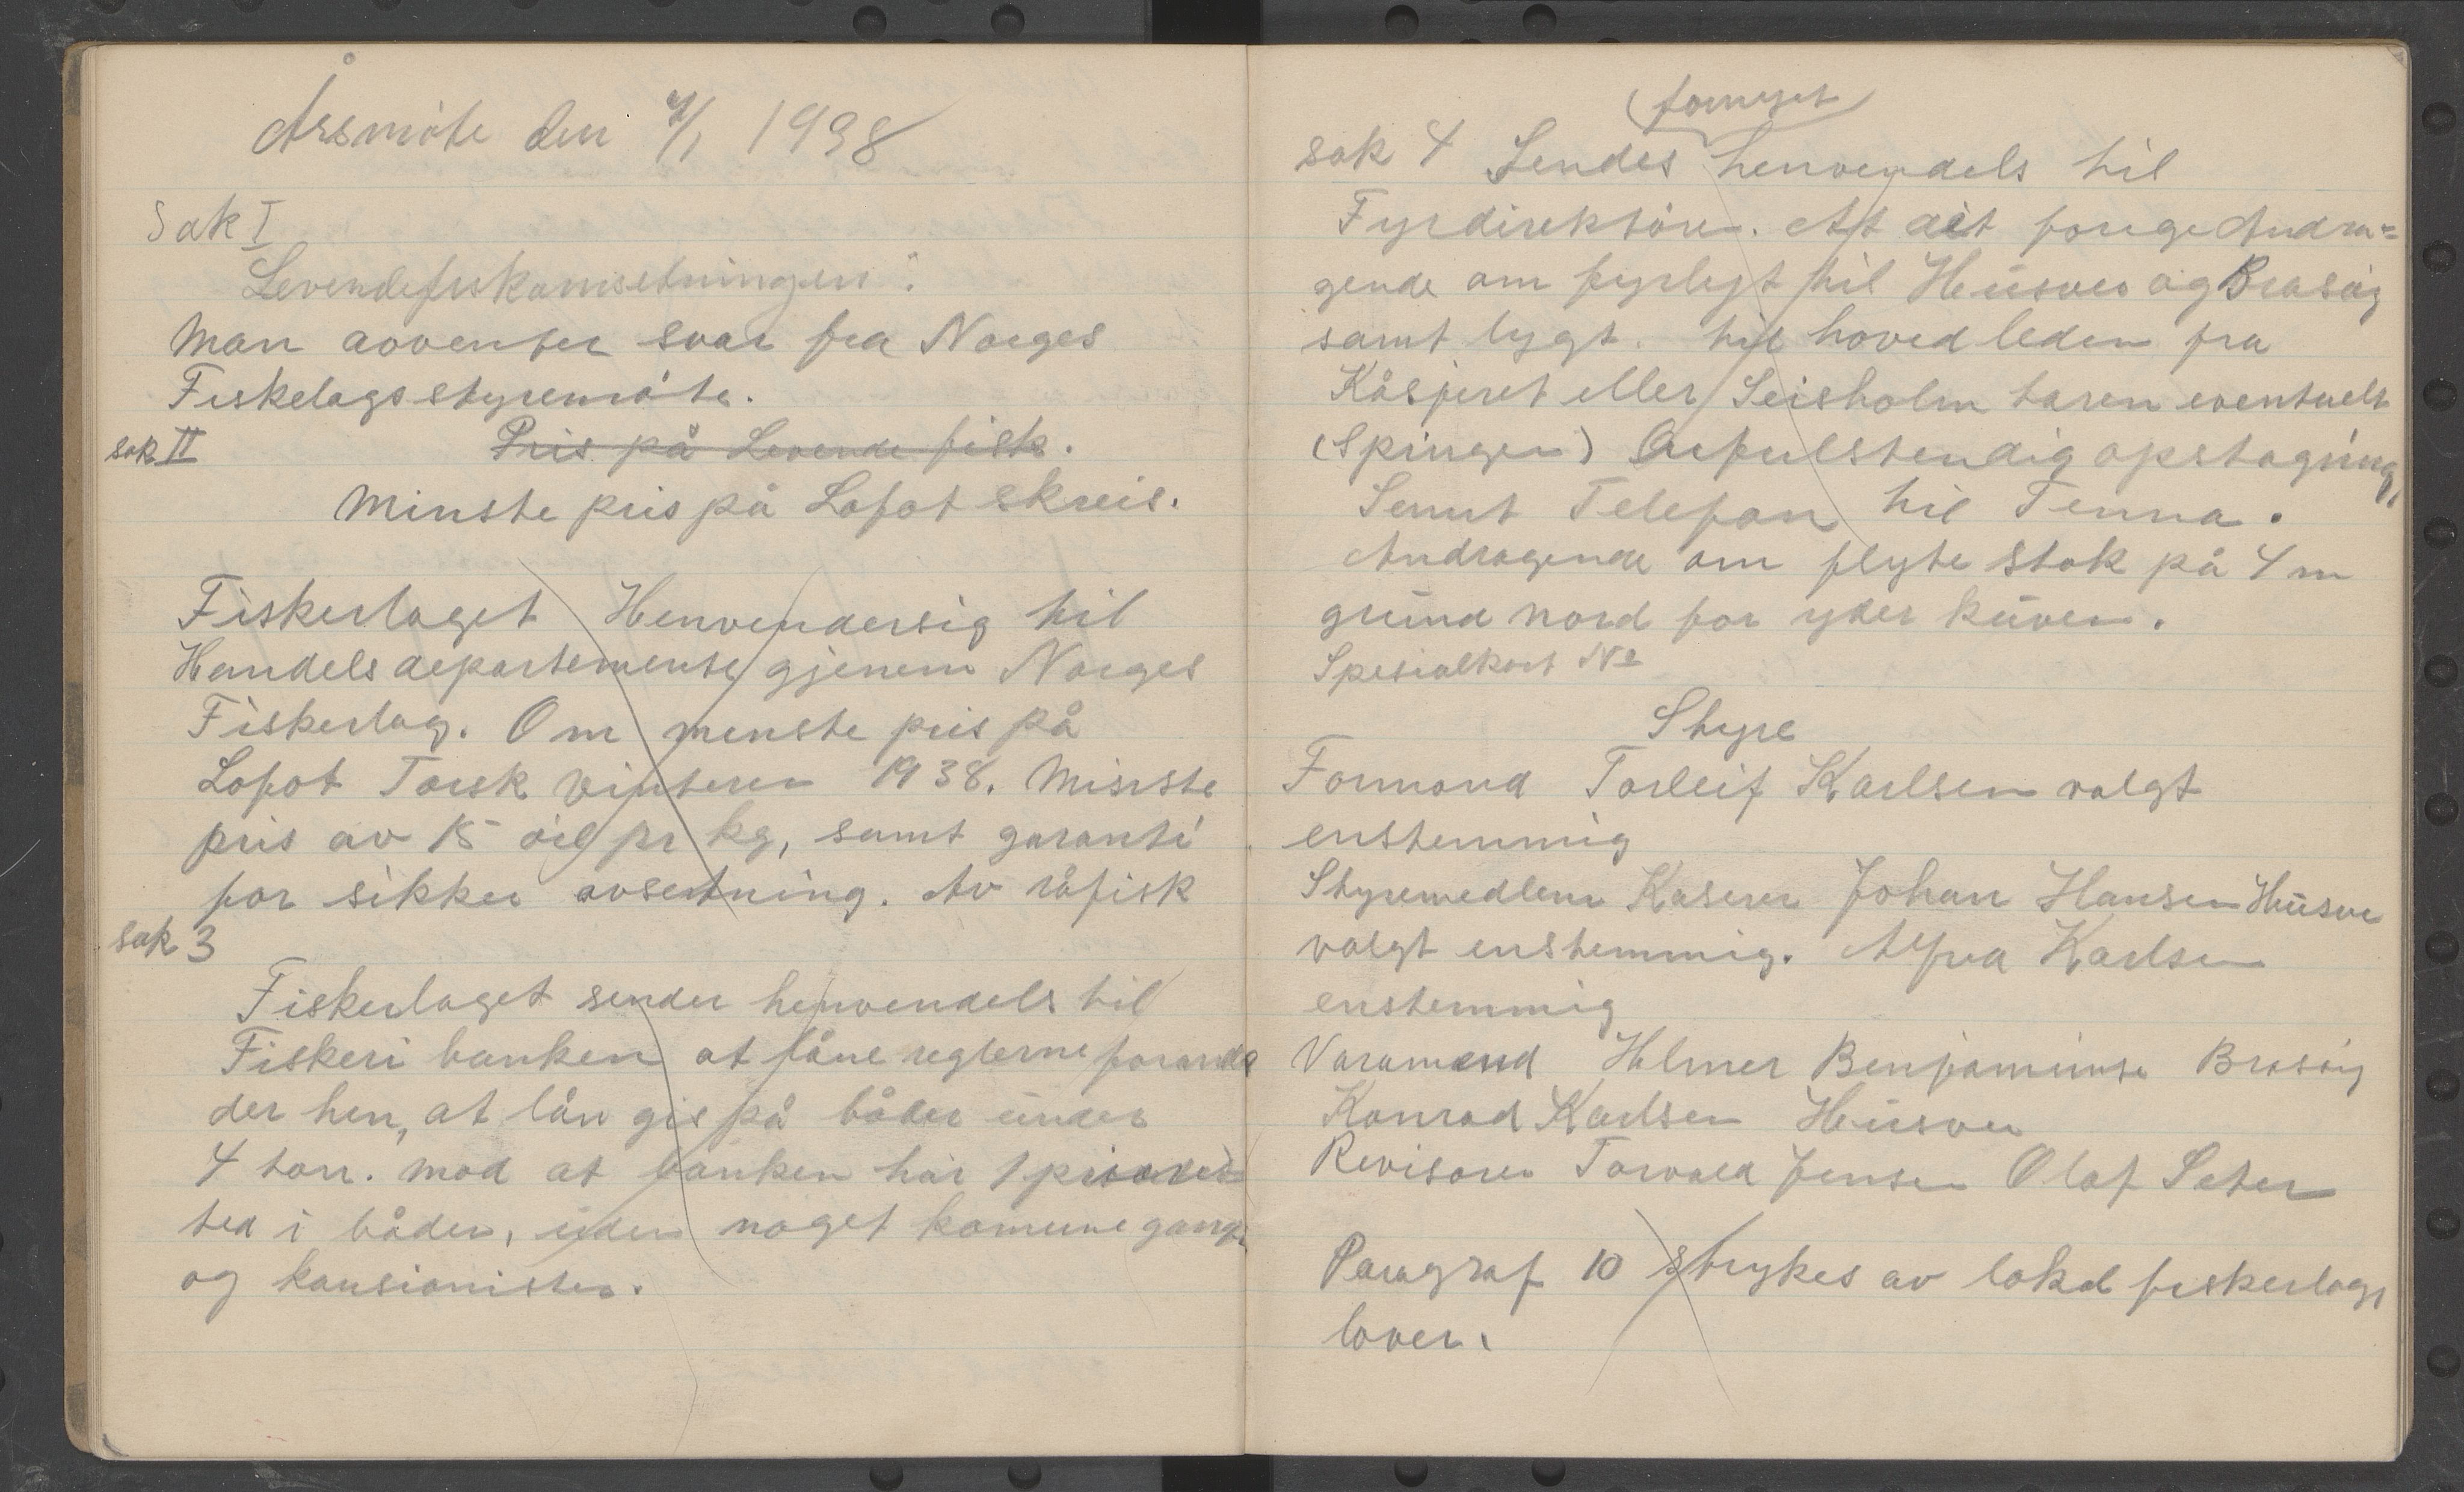 Årsmöte den 4/1 1938
Sak I
Levendefiskomsetningen".
Man avventer svar fra Norges
Fiskelags styremöte.
sak II Pris på Levende fisk.
Minste pris på Lofot skreis.
Fiskerlaget Henvendersig til
Handelsdepartemente gjenem Norges
Fiskerlag. Om menste pris på
Lofot Torsk vinteren 1938. Minste
pris av 15 öre pr kg, samt garanti
for sikker avsetning. Av råfisk
sak 3
Fiskerlaget sender henvendels til
Fiskeri banken at låne reglerne forande
der hen, at lån gis på båder under
4 tonn. mod at banken har 1 prisoritet
ted i båden, uden noget komune garagi
og kausionister.
(fornyet)
sak 4 Sendes henvendels til
Fyrdirektören. Att det forige Andra=
gende om fyrlygt til Husvær og Brasöy
samt lygt. til hovedleden fra
Kåsjeret eller Seisholm taren eventuelt
(Springen) Arfulstendig opstaging,
Samt Telefon til Tenna.
Andragende om flyte stak på 4 m
grund nord for yder kuven.
Spesialkart No
Styre
Formand Torleif Karlsen valgt
enstemmig
Styremedlem Kaserer Johan Hansen Husvæ
valgt enstemmig. Alfred Karlsen
enstemmig
Varamend Helmer Benjaminse Brasöy
Konrad Karlsen Husvær
Revisorer Torvald Jensen Olaf Seter
Paragraf 10 strykes av lokal fiskerlags
lover.